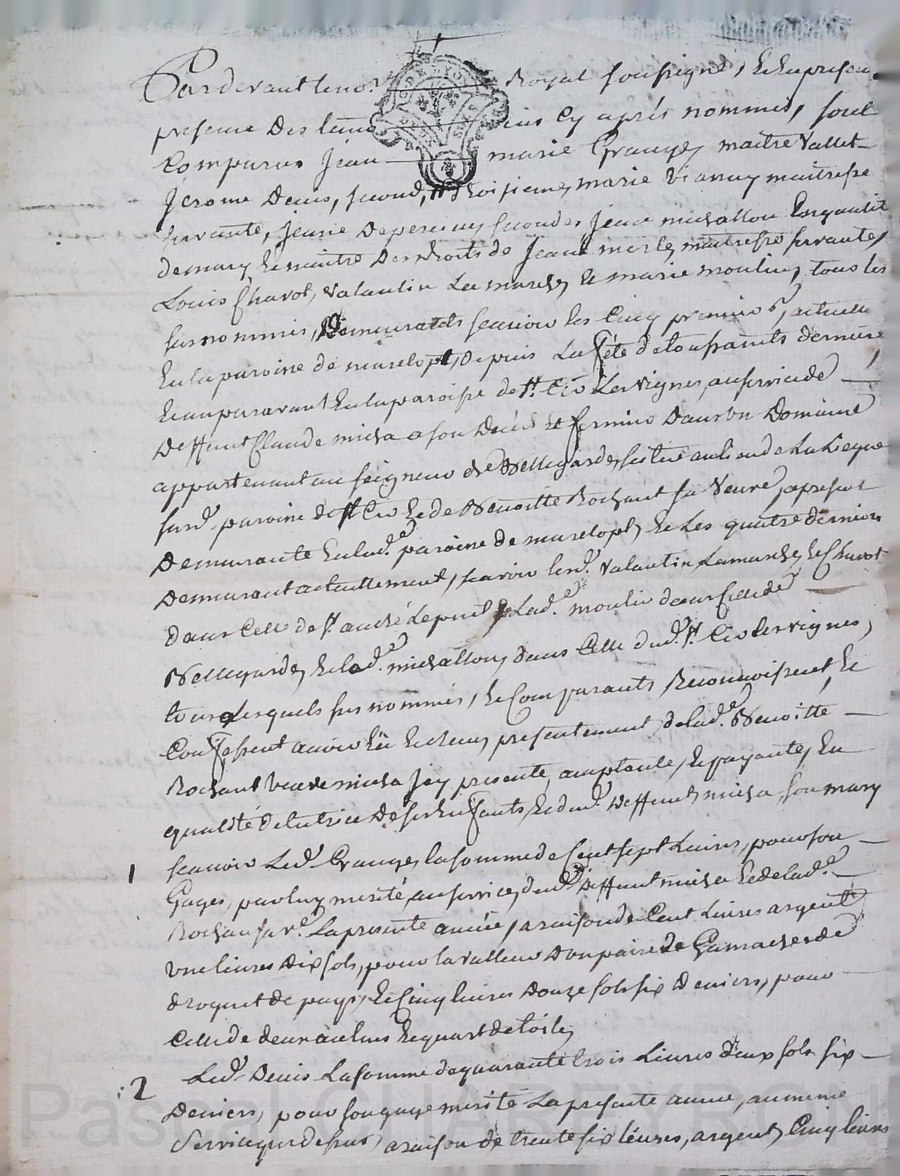 Pardevant le no Royal soussigné, et en presence
presence des tém oins cy aprés nommés, sont
Comparus Jean marie Grange, maitre Vallet
Jerome Denis, second, troisieme, marie Viannay maitresse
servante, Jeane seconde, Jeane michallon En qualité
demary et maitre des droits de Jeane merle, maitresse servante,
Louis Chavot, Valantin Lamarche et marie moulin, tous les
surnommés, Demeurants scavoir les Cinq premiers, actuelle
En la paroisse de marclopt, depuis La fête de toussaints derniere
Et auparavant En la paroisse de st. Cir Les Vignes, au service de
Deffunt Claude micha a son Décés et fermier D'autre Domaine
appartenant au seigneur de Bellegarde, situé au lieu de La Lieque
surd. paroisse de st Cir Et de Benoitte Rochant sa Veuve, apresent
Demeurante En lad. paroisse de marclopt, Et Les quatre derniers
Demeurant actuellement, scavoir led. Valantin Lamarche, Et Chavot
dans Celle de st. andré Lepuit, Lad. moulin dans Celle de
Bellegarde, Et lad. michallon, dans Celle dud. st. Cir les vignes,
tous Lesquels sus nommés, Et Comparants Reconnoissent, Et
Confessent avoir Eü Et Receu, presentement de lad. Benoitte
Rochant Veuve micha Icy presente, acceptante, Et payante, En
qualité de tutrice de ses Enfants, Et dud. deffunt micha son mary
1 scavoir Led. Grange, la somme de Cent sept Livres, pour son
Gages, par luy merité, au service, dud. deffunt micha Et de lad.
Rochant sa ve. La presente année, a raison de Cent Livres argent
une livres dix sols, pour la valleur d'un paire de Gamaches de
droguet de pays, Et Cinq livres douze sols six deniers, pour
Celle de deux aulnes Et quart de toile,
:2 Led. Denis La somme de quarante trois Livres deux sols six
Deniers, pour son gage merité La presente année, au meme
Service que dessus, a raison de trente six Livres, argent, Cinq livres
Pascal CHAREYRON